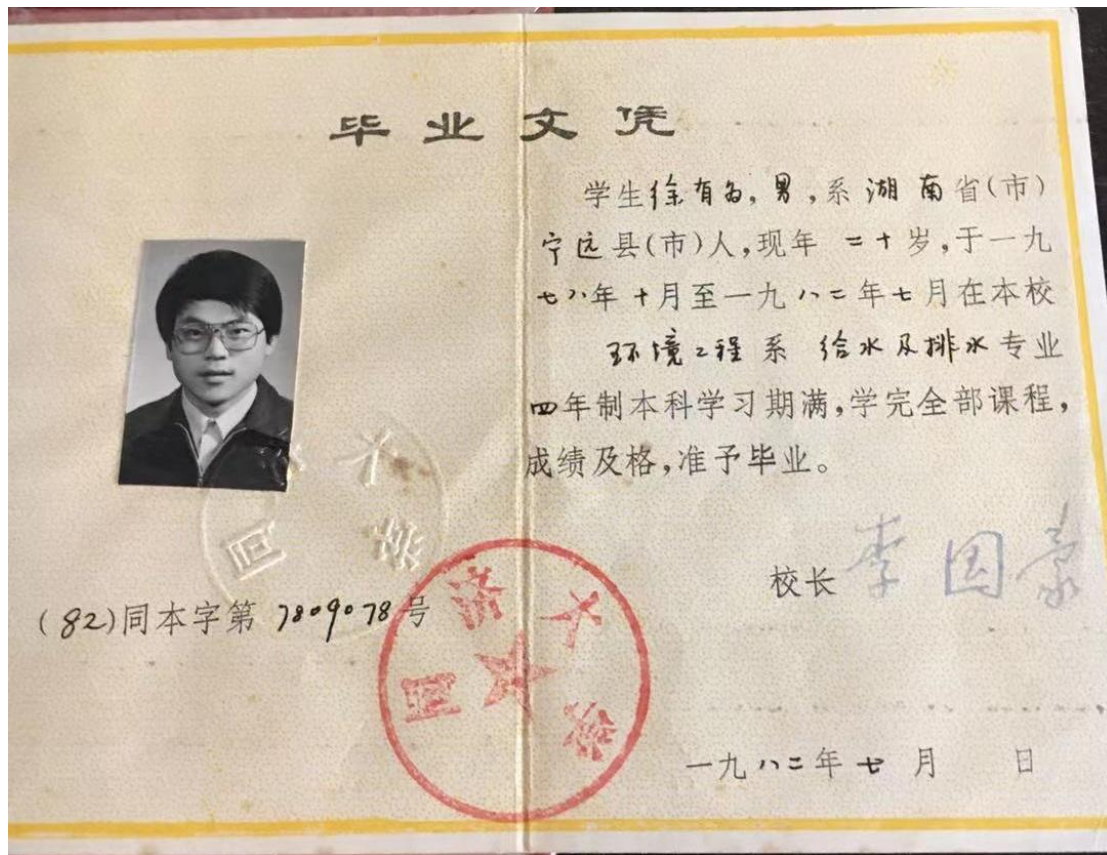 毕业文凭
学生徐有为,男,系湖南省(市)
宁远县(市)人,现年 二十岁,于一九
七八年十月至一九八二年七月在本校
环境工程系 给水及排水专业
四年制本科学习期满,学完全部课程,
成绩及格,准予毕业。
校长 李国豪
(82)同本字第 7809078 号
同济大学
同济大学
一九八二年七月 日